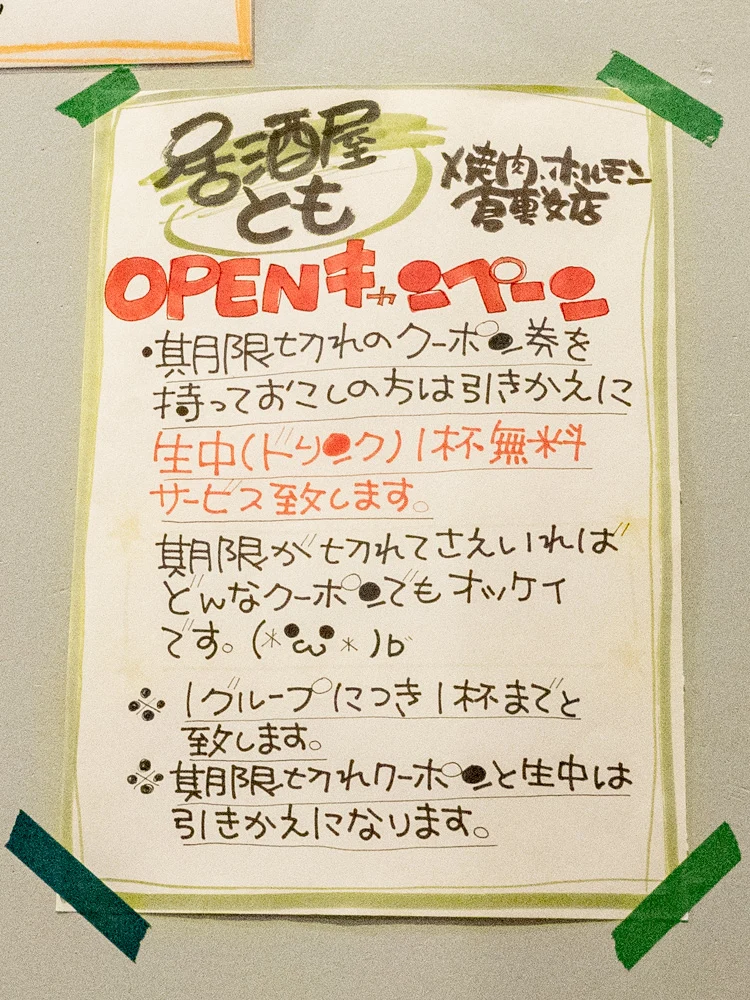 居酒屋
とも
焼肉・ホルモン
倉東女店
OPENキャンペーン
・期限切れのクーポン券を
持っておこしの方は引きかえに
生中(ドリンク)1杯無料
サービス致します。
期限が切れてさえいれば
どんなクーポンでもオッケイ
です。(*●ω●*)b
※1グループにつき1杯までと
致します。
※期限切れクーポンと生中は
引きかえになります。